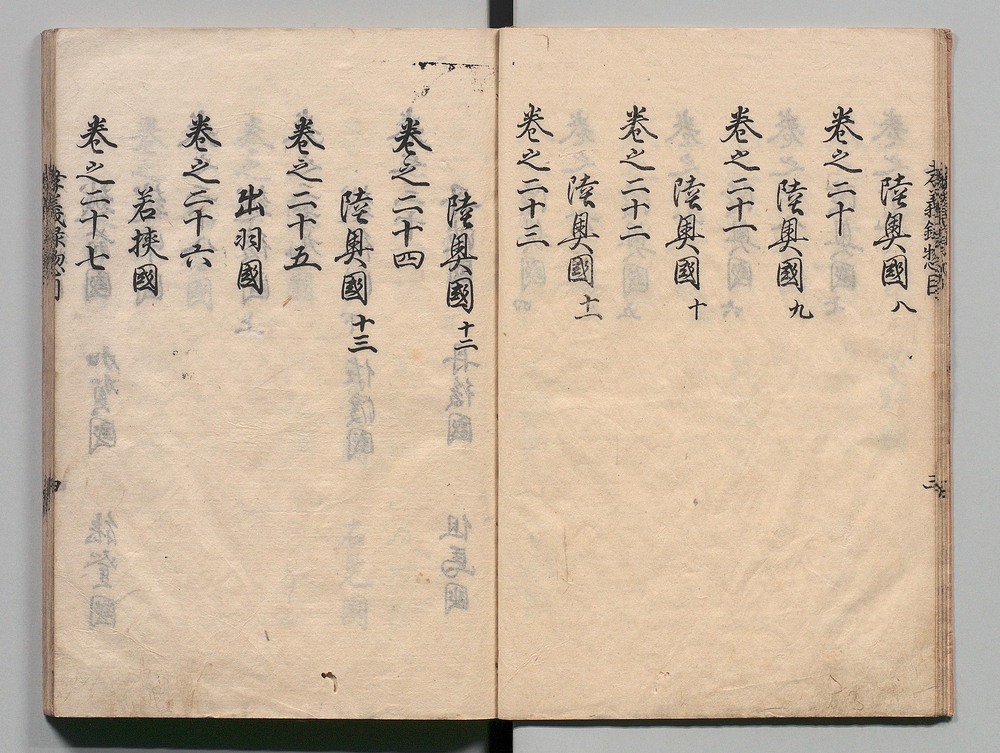 孝義録惣目
三
陸奥國 八
巻之二十
陸奥國 九
巻之二十一
陸奥國 十
巻之二十二
陸奥國 十一
巻之二十三
陸奥國 十二
巻之二十四
陸奥國 十三
巻之二十五
出羽國
巻之二十六
若狭國
巻之二十七